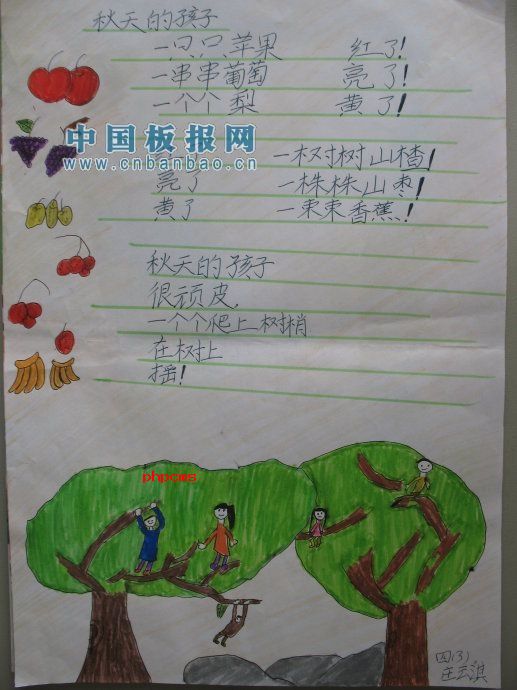 秋天的孩子
一只只苹果 红了!
一串串葡萄 亮了!
一个个梨 黄了!
中国板报网
www.cnbanbao.cn
一树树山楂!
亮了 一株株山枣!
黄了 一束束香蕉!
秋天的孩子
很顽皮,
一个个爬上树梢
在树上
摇!
phpcms
四(3)
庄云淇